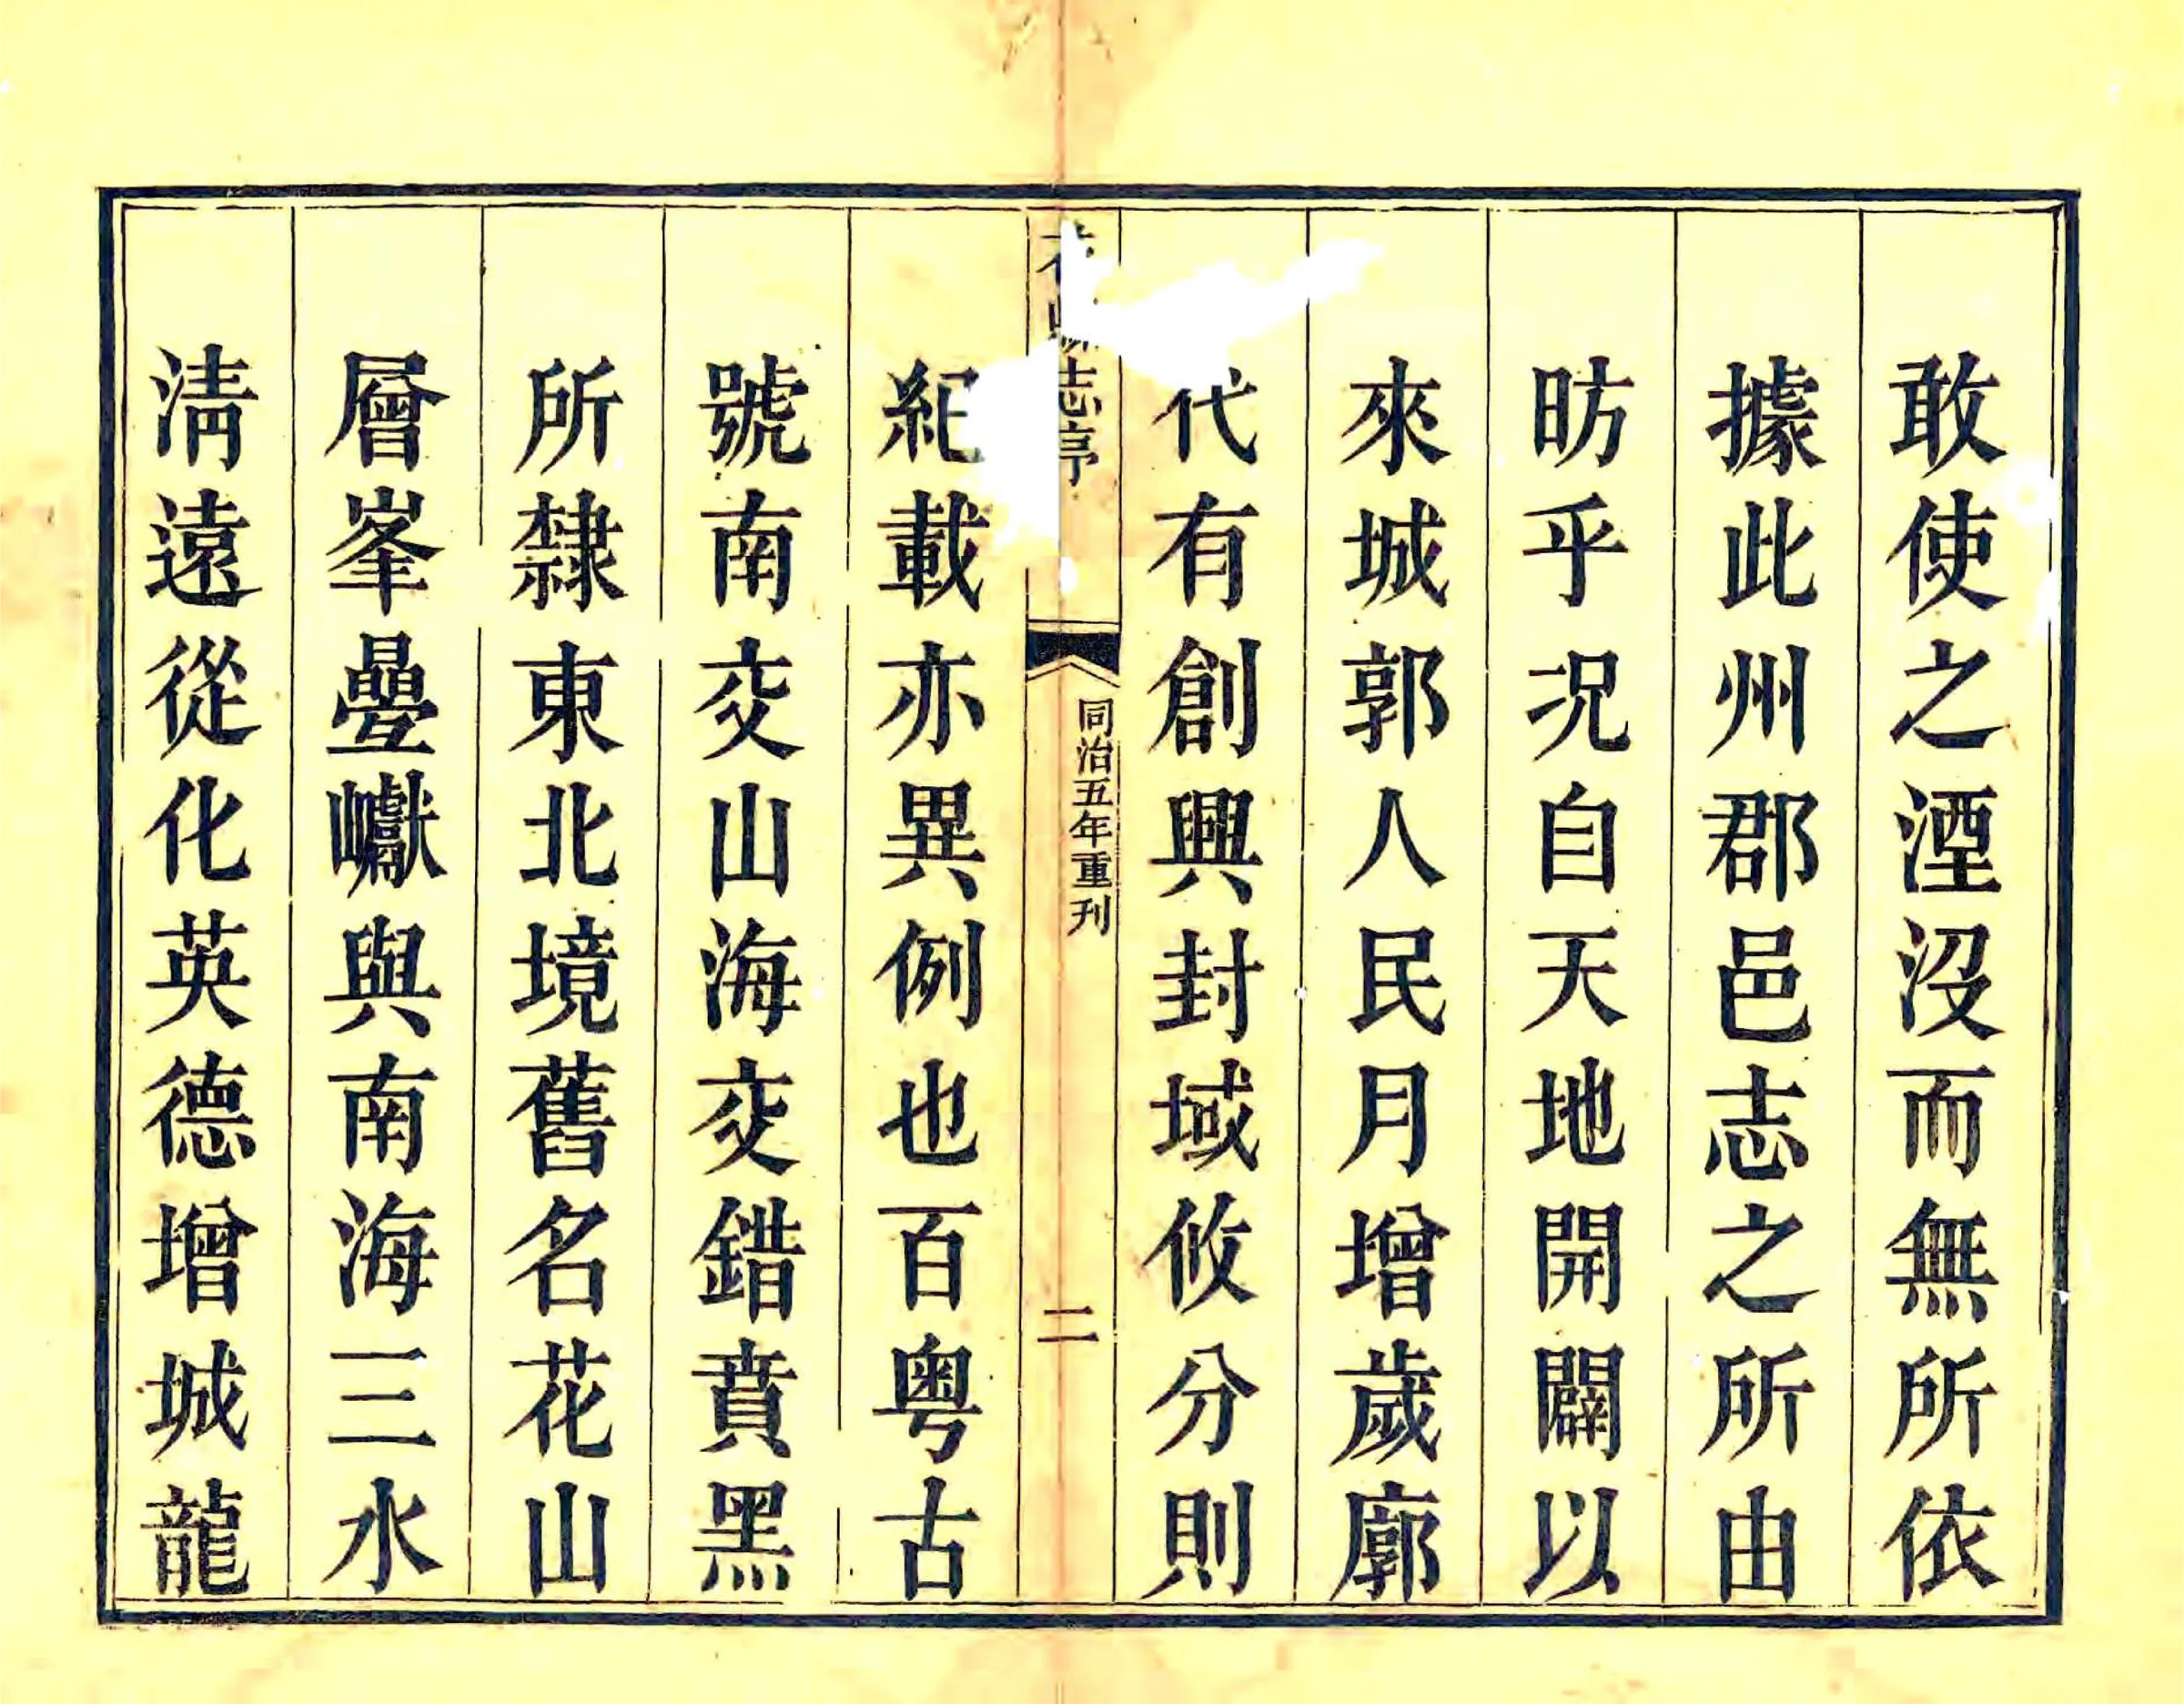 敢使之湮沒而無所依
據此州郡邑志之所由
昉乎况自天地開闢以
來城郭人民月增歲廓
代有創興封域攸分則
志序
同治五年重刋
二
紀載亦異例也百粤古
號南交山海交錯賁黑
所隸東北境舊名花山
層峯疊巘與南海三水
淸遠從化英德增城龍